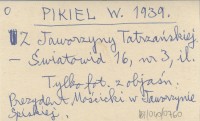 0
PIKIEL W. 1939.
Z Jaworzyny Tatrzańskiej.
– Światowid 16, nr 3, il.
Tylko fot. z objaśn.
Prezydent Mościcki w Jaworzynie
Spiskiej.